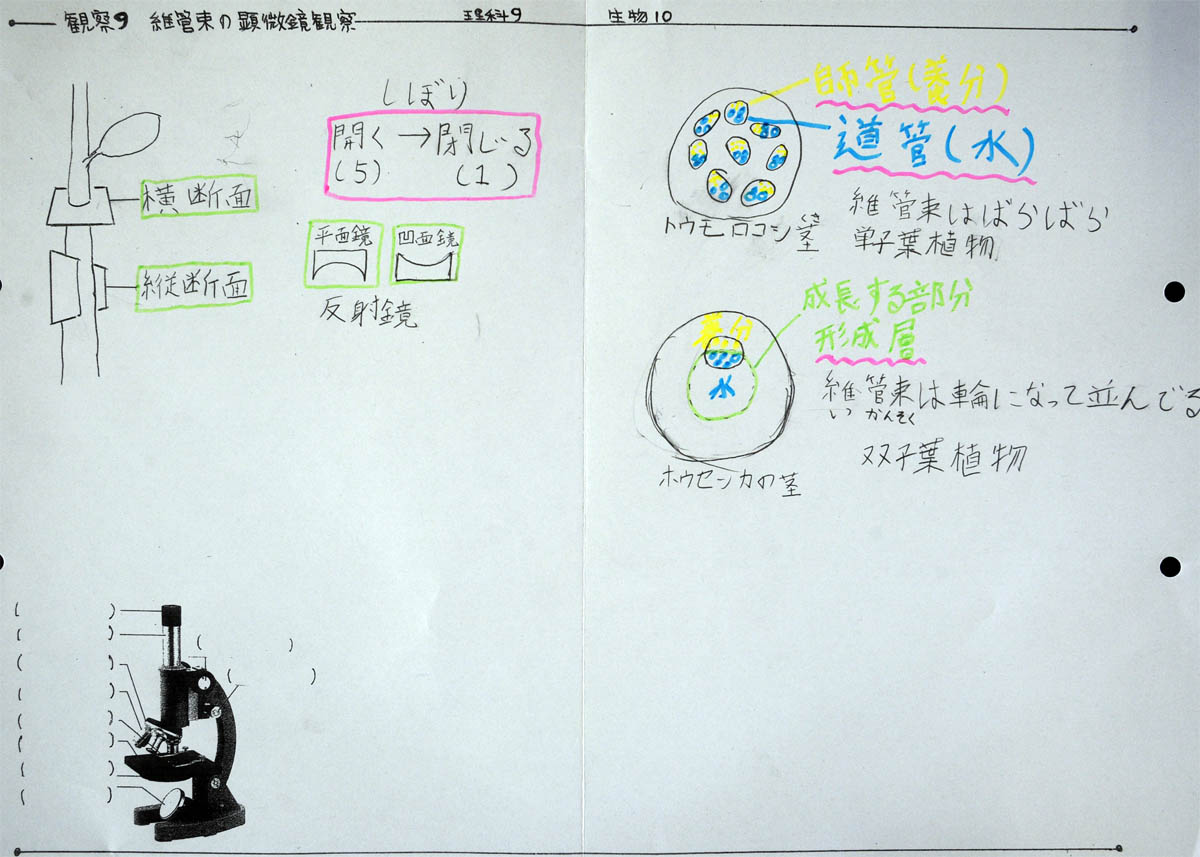 観察9 維管束の顕微鏡観察 理科9 生物10
しぼり
開く → 閉じる
(5) (1)
横断面
縦断面
平面鏡
凹面鏡
反射鏡
師管(養分)
道管(水)
トウモロコシ茎
維管束はばらばら
単子葉植物
成長する部分
形成層
養分
水
維管束は輪になって並んでる
い かんそく
双子葉植物
ホウセンカの茎
( )
( )
( )
( )
( )
( )
( )
( )
( )
( )